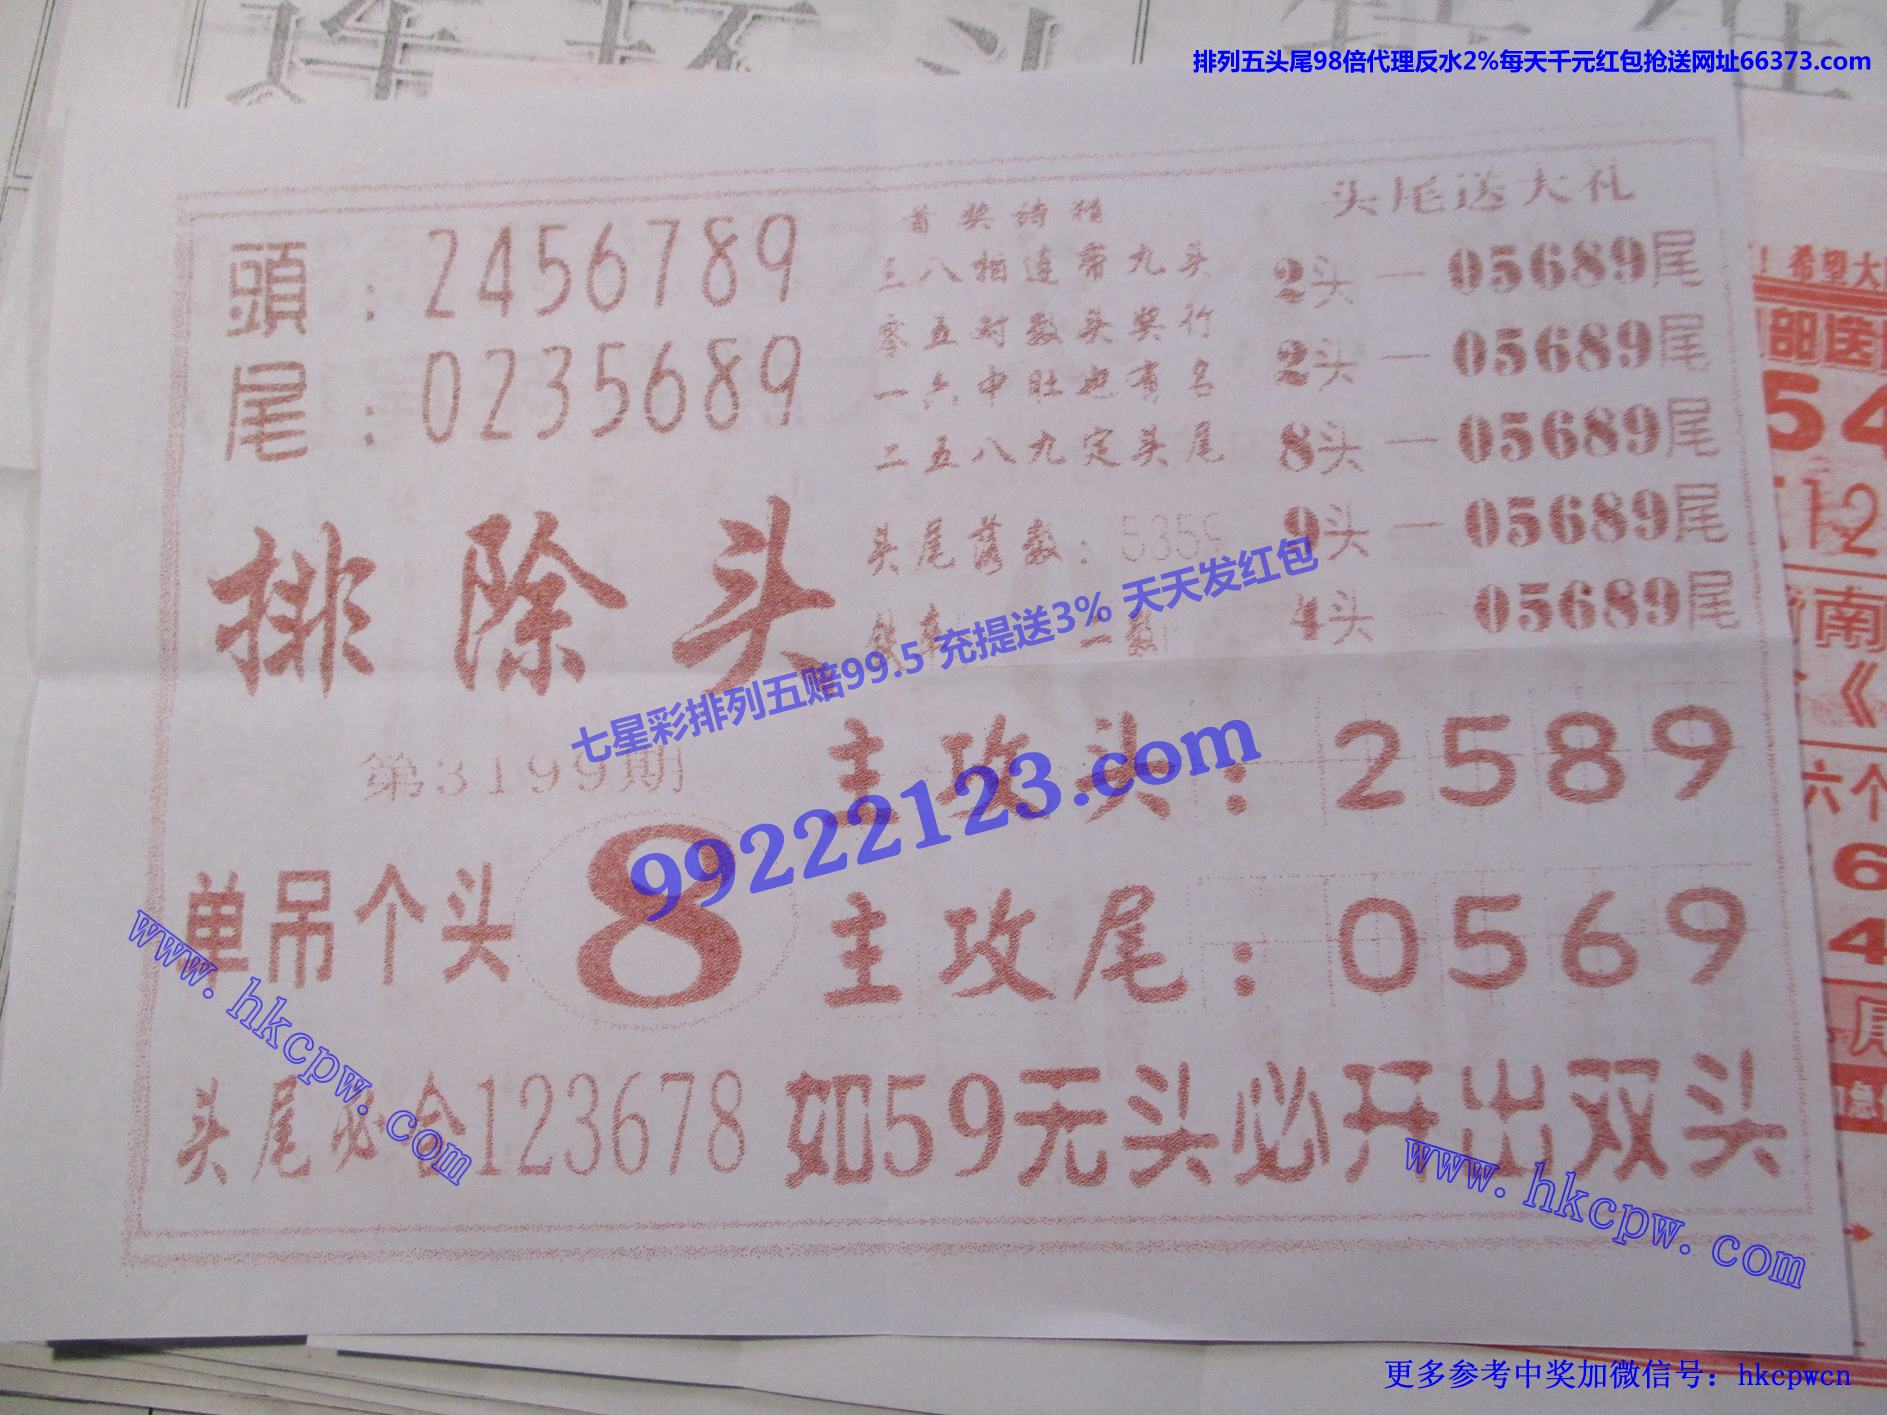 排列五头尾98倍代理反水2%每天千元红包抢送网址66373.com
頭：2456789
尾：0235689
首奖诗指
三八相连带九头
零五对数头奖行
一六中肚也有名
二五八九定头尾
头尾落数：5359
二数
头尾送大礼
2头—05689尾
2头—05689尾
8头—05689尾
9头—05689尾
4头—05689尾
排除头
七星彩排列五赔99.5 充提送3% 天天发红包
99222123.com
第3199期
主攻头：2589
单吊个头 8
主攻尾：0569
www.hkcpw.com
头尾必合123678 如59无头必开出双头
www.hkcpw.com
！希望大
部送
54
12
南
《
六个
6
4
尾
急
更多参考中奖加微信号：hkcpwcn